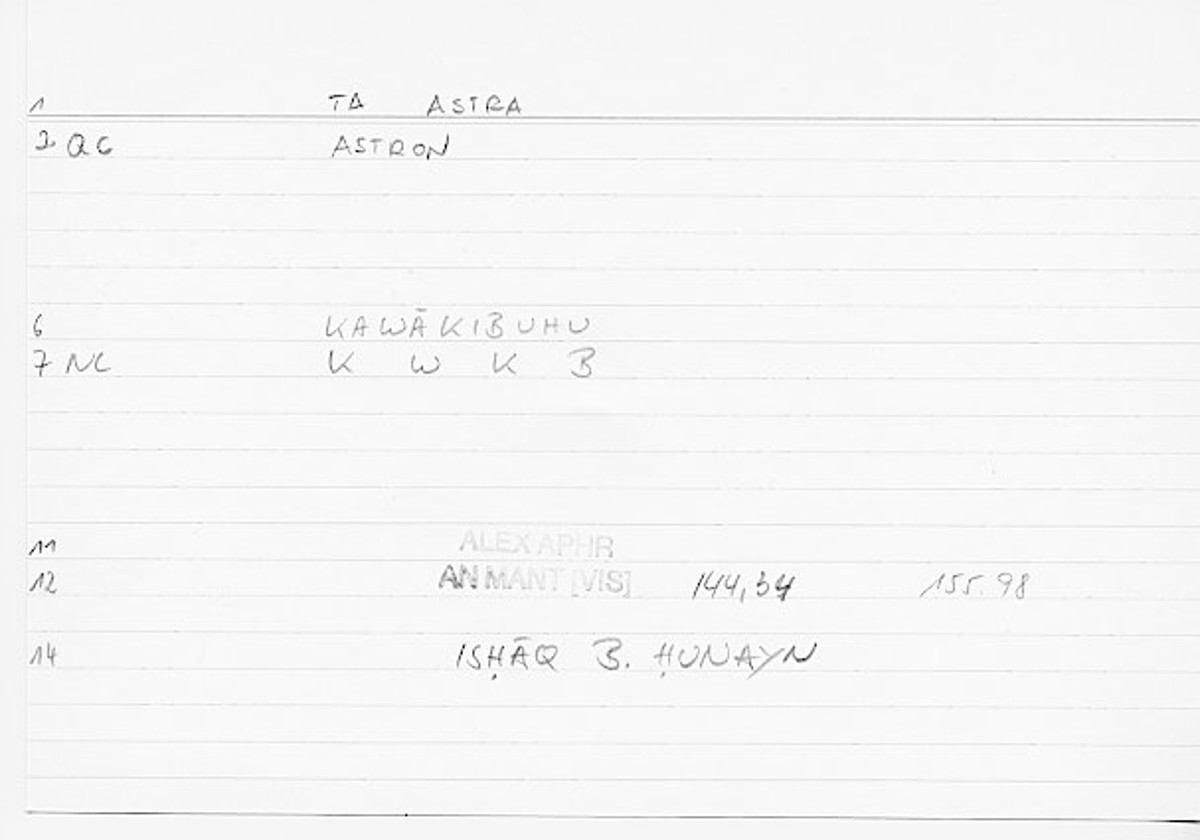 1 TA ASTRA
2 QC ASTRON
6 KAWĀKIBUHU
7 NC K W K B
11 ALEX APHR
12 AN MANT [VIS] 144,34 155.98
14 ISḤĀQ B. ḤUNAYN